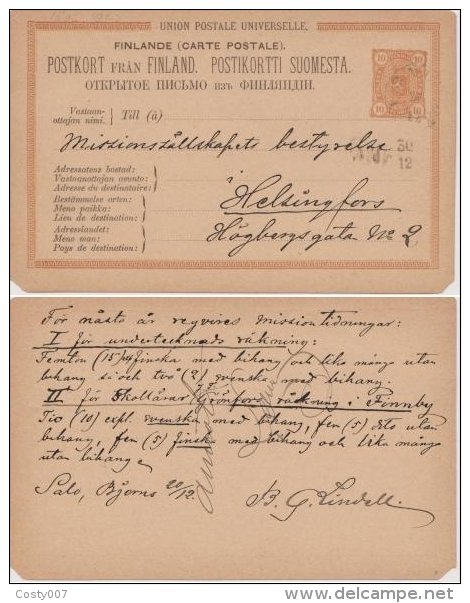 UNION POSTALE UNIVERSELLE.
FINLANDE (CARTE POSTALE).
POSTKORT FRÅN FINLAND. POSTIKORTTI SUOMESTA.
ОТКРЫТОЕ ПИСЬМО изъ ФИНЛЯНДІИ.
10 10
10 10
Vastaan-
ottajan nimi.
Till (à)
Missionssällskapets bestyrelse
30
12
Adressatens bostad:
Vastaanottajan asunto:
Adresse du destinataire:
à
Helsingfors
Bestämmelse orten:
Meno paikka:
Lieu de destination:
Högbergsgatan No 2
Adresslandet:
Meno maa:
Pays de destination:
För nästa år reqvireras Missionstidningar:
I för undertecknads räkning:
Femton (15) finska med bihang och lika många utan
bihang och två (2) svenska med bihang.
II för Skollärar Grönfors räkning i Finnby
Tio (10) expl. svenska med bihang, fem (5) dito utan
bihang, fem (5) finska med bihang och lika många
utan bihang.
Salo, Bjerno 20/12.
B. G. Lindell.
Costy007
delcampe.net